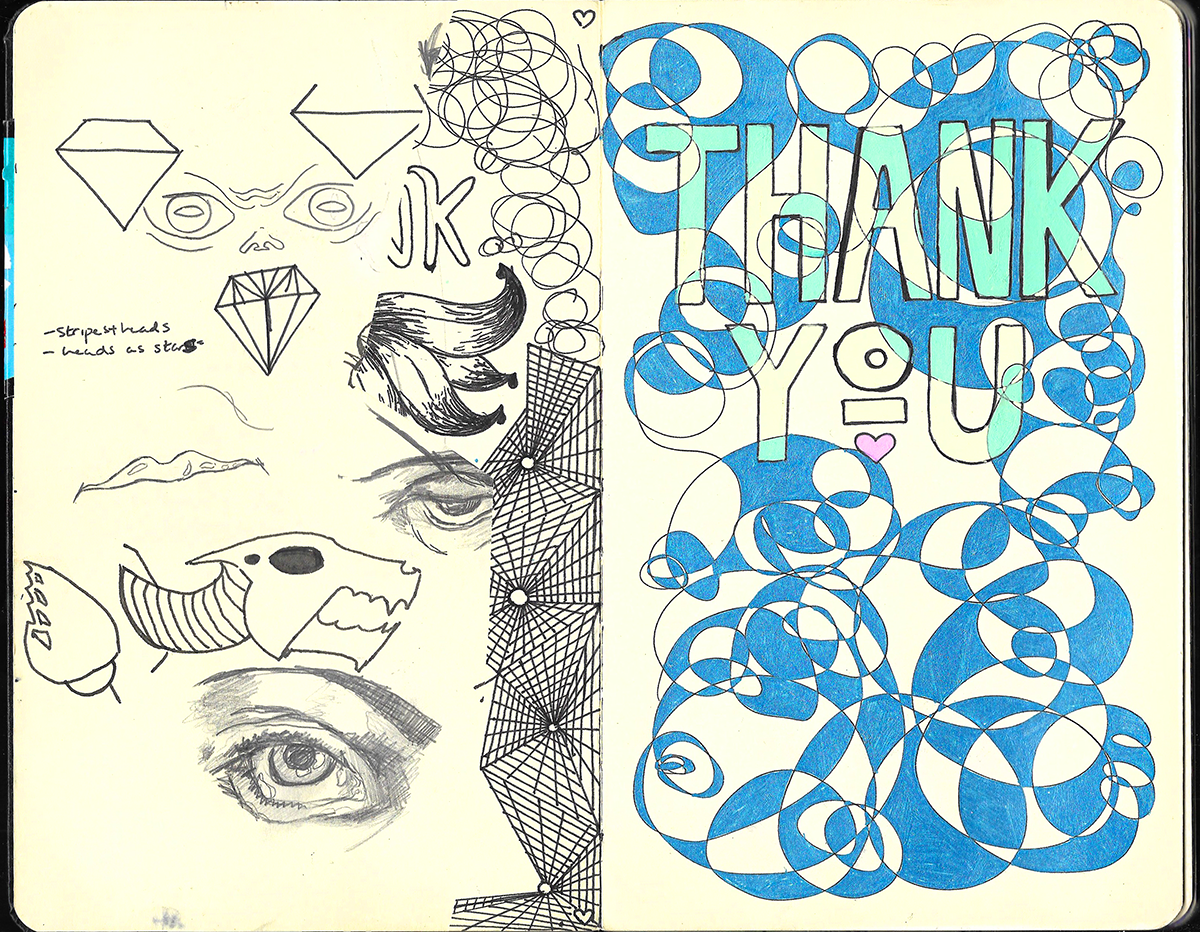 JK
-stripes+heads
- heads as stars
THANK
YOU